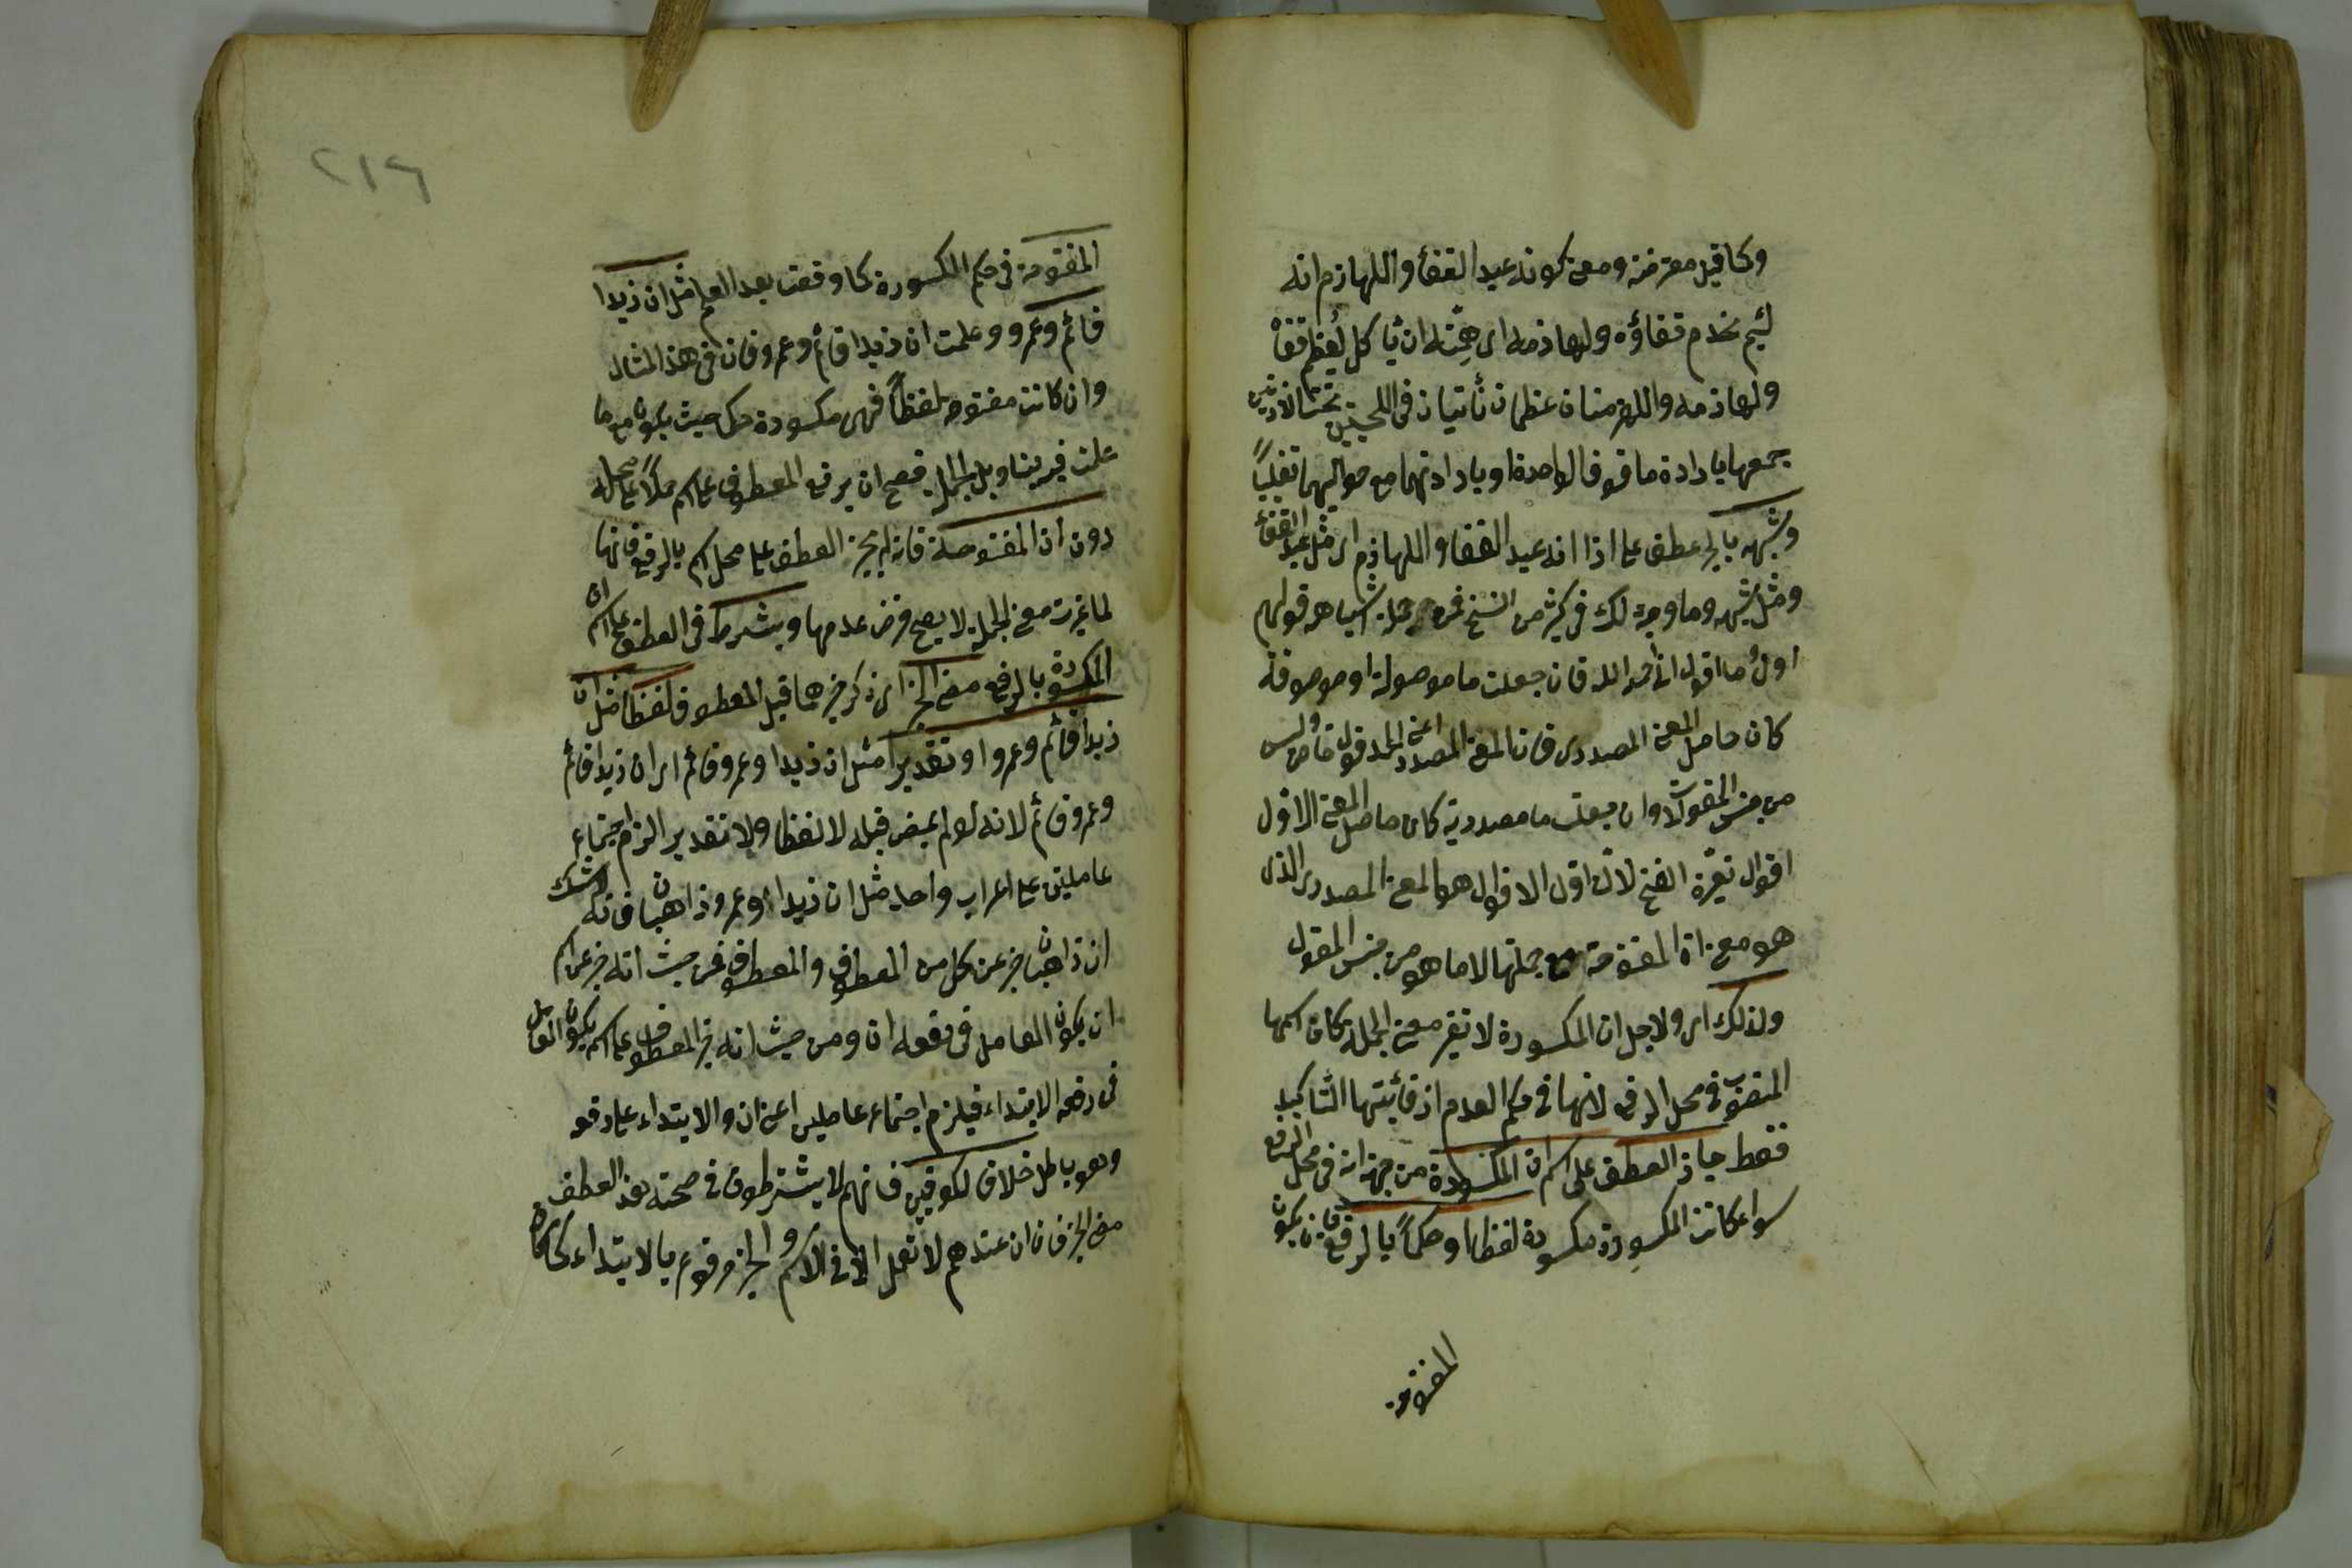 وكما قيل معترضة ومعنى كونه عبد القفا واللهازم انه
لئيم يخدم قفاؤه ولهازمه اى همته ان يأكل ليعظم قفاه
ولهازمه واللهزمتان عظمان ناتيان فى اللحيين تحت الاذنين
جمعهما بارادة ما فوق الواحد او بارادتهما مع حواليهما تغليبًا
وشبهه بالجر عطف على اذا انه عبد القفا واللهازم اى مثل عبد القفا
ومثل شبهه ومما وجد ذلك فى كثير من النسخ فمن جملة اشباهه قولهم
اول ما اقول انى احمد الله فان جعلت ما موصولة او موصوفة
كان حاصل المعنى المصدرى فان المعنى المصدرى اعنى الحمد قول خاص وليس
من جنس المقولات وان جعلت ما مصدرية كان حاصل المعنى اول
اقوال تعين الفتح لان اول الاقوال هو المعنى المصدرى الذى
هو معنى ان المفتوحة مع جملتها لا ما هو من جنس المقول
ولذلك اى ولاجل ان المكسورة لا تغير معنى الجملة كان اسمها
المنصوب فى محل الرفع لانها فى حكم العدم اذ فائدتها التاكيد
فقط جاز العطف على اسم ان المكسورة من جهة انه فى محل الرفع
سواء كانت المكسورة مكسورة لفظا او حكمًا بالرفع بان يكون
المفتوحة
٢١٦
المفتوحة فى حكم المكسورة كما وقعت بعد العلم مثل ان زيدا
قائم وعمرو وعلمت ان زيدا قائم وعمرو فان فى هذا المثال
وان كانت مفتوحة لفظًا فهى مكسورة حكما حيث يكون مع ما
عملت فيه بتاويل الجملة فصح ان يرفع المعطوف على اسمها حملًا على محله
دون ان المفتوحة فانه لم يجز العطف على محل اسمها بالرفع فانها
لما غيرت معنى الجملة لا يصح فرض عدمها ويشترط فى العطف على اسم ان
المكسورة بالرفع مضى الخبر اى ذكر خبرها قبل المعطوف لفظًا مثل ان
زيدا قائم وعمرو او تقديرًا مثل ان زيدا وعمرو قائم اى ان زيدا قائم
وعمرو قائم لانه لو لم يمض قبله لا لفظا ولا تقديرا لزم اجتماع
عاملين على اعراب واحد مثل ان زيدا وعمرو ذاهبان فانه لا شك
ان ذاهبان خبر عن كل من المعطوف والمعطوف فمن حيث انه خبر عن اسم
ان يكون العامل فى رفعه ان ومن حيث انه خبر المعطوف على اسمها يكون العامل
فى رفعه الابتداء فيلزم اجتماع عاملين اعنى ان والابتداء على رفعه
وهو باطل خلافا للكوفيين فانهم لا يشترطون فى صحة هذا العطف
مضى الخبر فان ان عندهم لا تعمل الا فى الاسم والخبر مرفوع بالابتداء كما كان